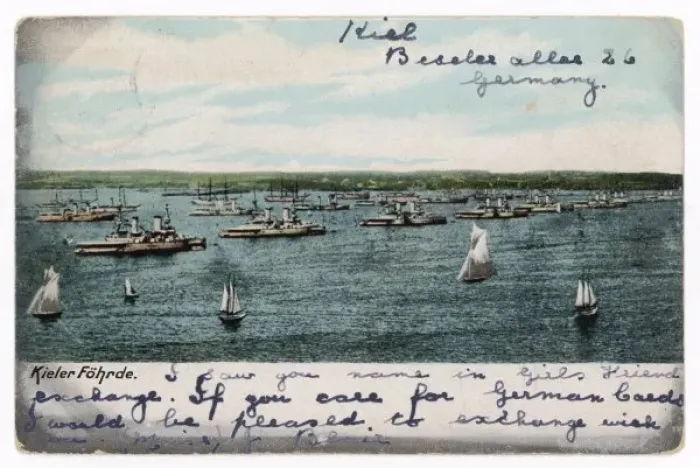 Kiel
Beseler allee 26
Germany.
Kieler Föhrde.
I saw you name in Girls Friend
exchange. If you care for German Cards
I would be pleased to exchange with
(Miss) J.